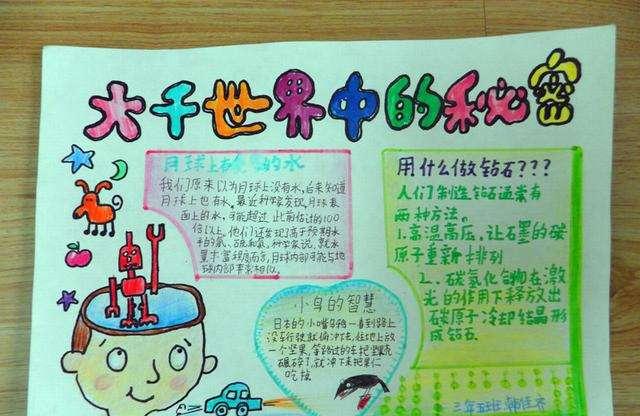 大千世界中的秘密
月球上有 的水
我们原来以为月球上没有水,后来知道
月球上也有水。最近科学家发现,月球表
面上的水,可能超过此前估计的100
倍以上。他们还发现了高于预期水
平的氯、硫和氟,科学家说,就水
量丰富程度而言,月球内部可能与地
球内部非常相似。
用什么做钻石???
人们制造钻石通常有
两种方法。
1.高温高压,让石墨的碳
原子重新排列
2、碳氢化合物在激
光的作用下释放出
碳原子冷却结晶形
成钻石。
小鸟的智慧
日本的小嘴乌鸦一看到路上
没车行驶就俯冲下去,往地上放
一个坚果,等路过的车把坚壳
碾碎了,就冲下来把果仁
吃掉
三年五班